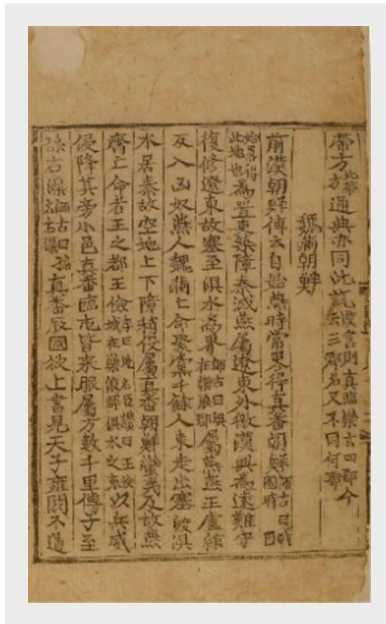 帶方北帶方通典亦同此說漢書則真臨樂玄四郡今云三郡名又不同何耶
魏滿朝鮮
前漢朝鮮傳云自始燕時常畧得真番朝鮮師古曰戰國時因
始畧得此地也為置吏築障秦滅燕屬遼東外徼漢興為遠難守
復修遼東故塞至浿水為界師古曰浿在樂浪郡屬燕燕王盧綰
反入凶奴燕人魏滿亡命聚黨千餘人東走出塞渡浿
水居秦故空地上下障稍役屬真番朝鮮蠻夷及故燕
齊亡命者王之都王儉李曰地名臣讚曰王儉城在樂浪郡浿水之東以兵威
侵降其旁小邑真番臨屯皆來服屬方數千里傳子至
孫右渠師古曰孫名右渠真番辰國欲上書見天子雍閼不通